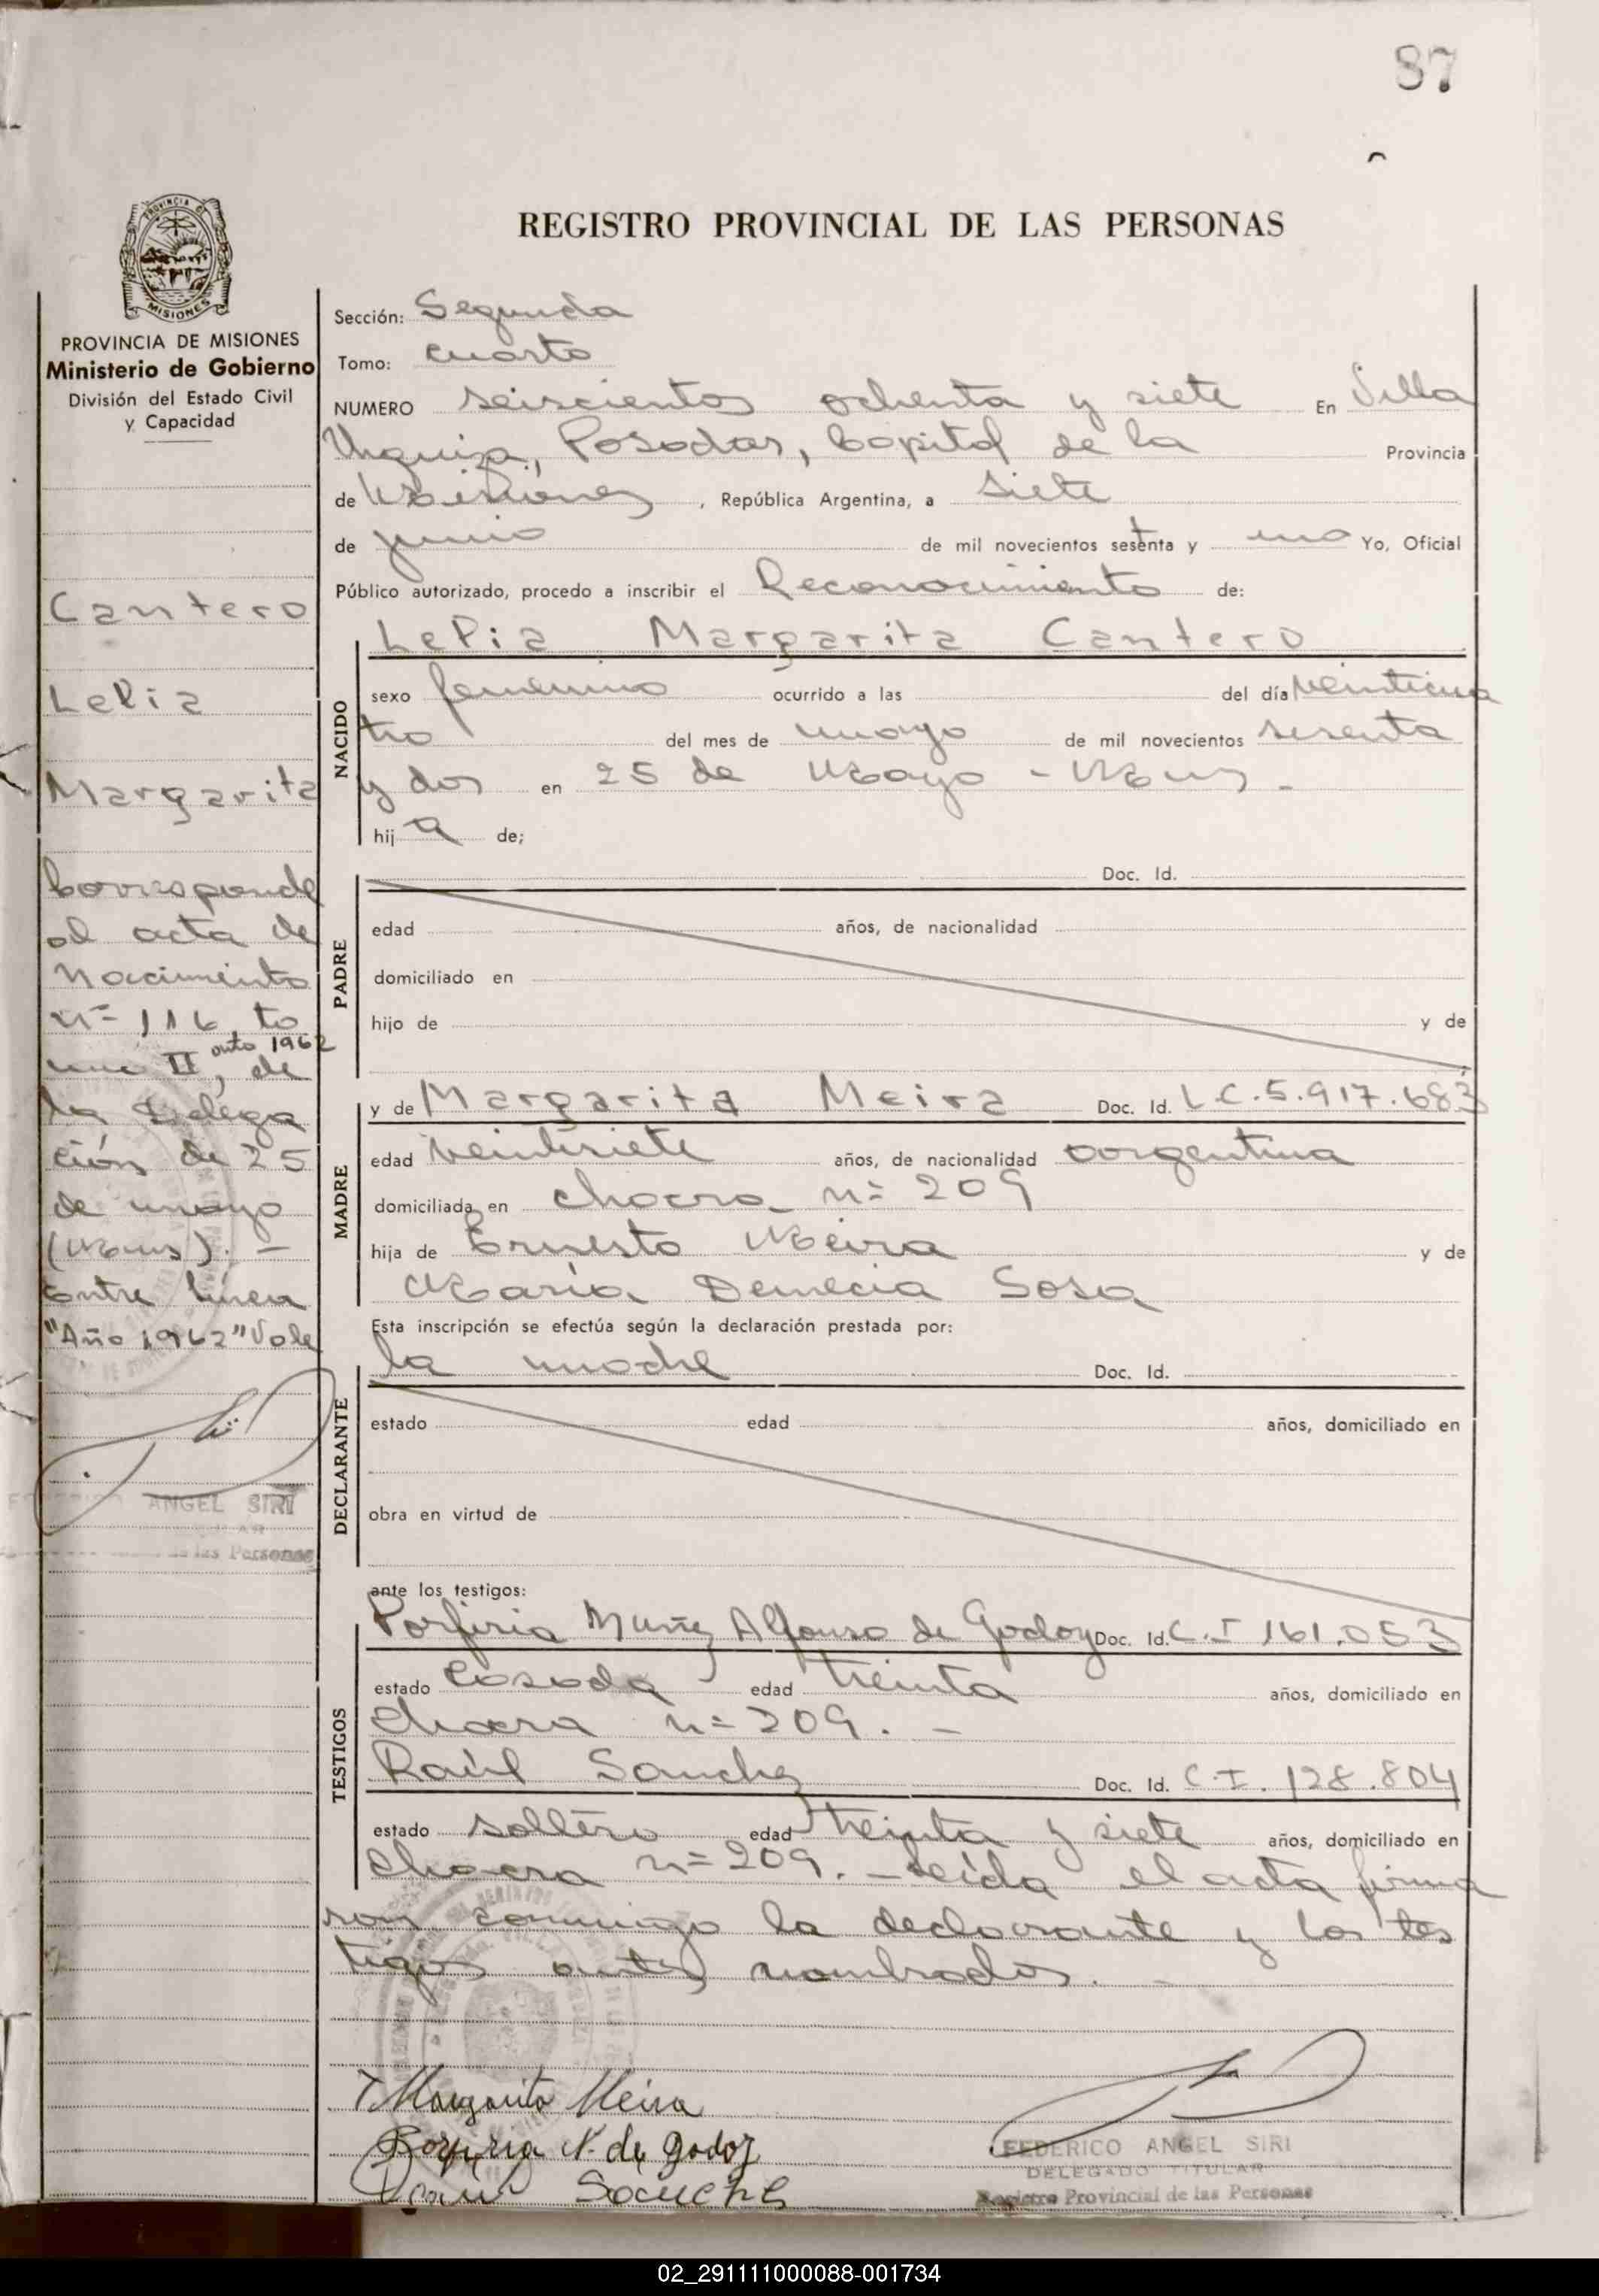 87
REGISTRO PROVINCIAL DE LAS PERSONAS
PROVINCIA DE MISIONES
PROVINCIA DE MISIONES
Ministerio de Gobierno
División del Estado Civil
y Capacidad
Cantero
Lelia
Margarita
Corresponde
al acta de
Nacimiento
nº 116, to
mo II, de
auto 1962
la Delega
ción de 25
de mayo
(Mnes). -
Entre línea
"Año 1962" Vale
ANGEL SIRI
de las Personas
Sección: Segunda
Tomo: cuarto
NUMERO seiscientos ochenta y siete En Villa
Urquiza, Posadas, Capital de la Provincia
de Misiones, República Argentina, a siete
de junio de mil novecientos sesenta y uno Yo, Oficial
Público autorizado, procedo a inscribir el Reconocimiento de:
Lelia Margarita Cantero
NACIDO
sexo femenino ocurrido a las del día veinticua
tro del mes de mayo de mil novecientos sesenta
y dos en 25 de Mayo - Mnes -
hija de;
PADRE
Doc. Id.
edad años, de nacionalidad
domiciliado en
hijo de y de
MADRE
y de Margarita Meira Doc. Id. L.C. 5.917.683
edad veintisiete años, de nacionalidad argentina
domiciliada en chacra nº 209
hija de Ernesto Meira y de
María Demecia Sosa
Esta inscripción se efectúa según la declaración prestada por:
DECLARANTE
la madre Doc. Id.
estado edad años, domiciliado en
obra en virtud de
ante los testigos:
TESTIGOS
Porfiria Muñez Alfonso de Godoy Doc. Id. C.I 161.053
estado casada edad treinta años, domiciliado en
chacra nº 209. -
Raúl Sanchez Doc. Id. C.I. 128.804
estado soltero edad treinta y siete años, domiciliado en
chacra nº 209. - Leída el acta firma
ron conmigo la declarante y los tes
tigos antes nombrados. -
Margarita Meira
Porfiria N. de Godoy
FEDERICO ANGEL SIRI
DELEGADO TITULAR
Registro Provincial de las Personas
02_291111000088-001734